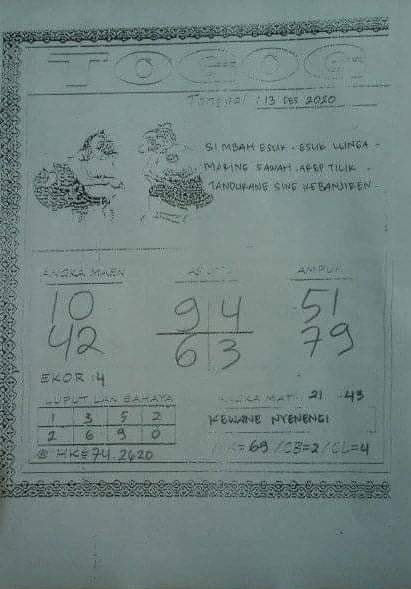 TOGOG
Tanggal : 13 DES 2020
SI MBAH ESUK - ESUK LUNGA
MARING SAWAH . AREP TILIK
TANDURANE SING KEBANJIREN
ANGKA MAEN
10
42
9 4
6 3
AMPUH
51
79
EKOR : 4
LUPUT LAN BAHAYA
1 3 5 2
2 6 9 0
HK= 74. 2620
ANGKA MATI : 21 43
KEWANE NYENENGI
= 69 / CB=2 / CL=4